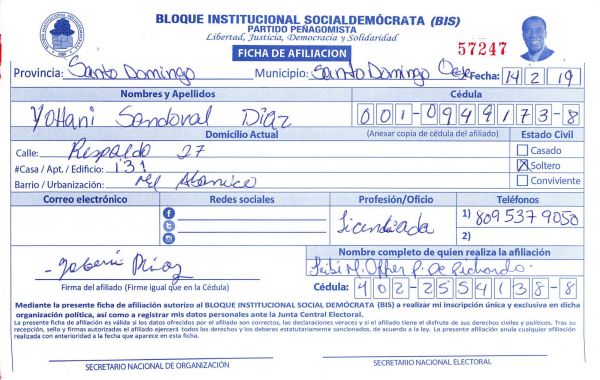 BLOQUE INSTITUCIONAL SOCIALDEMÓCRATA (BIS)
PARTIDO PEÑAGOMISTA
Libertad, Justicia, Democracia y Solidaridad
FICHA DE AFILIACION
57247
Provincia: Santo Domingo Municipio: Santo Domingo Oeste Fecha: 14 2 19
Nombres y Apellidos Cédula
Yohani Sandoval Diaz 001-0949173-8
Domicilio Actual (Anexar copia de cédula del afiliado) Estado Civil
Calle: Respaldo 27 Casado
#Casa / Apt. / Edificio: 131 Soltero
Barrio / Urbanización: Conviviente
Correo electrónico Redes sociales Profesión/Oficio Teléfonos
Licenciada 1) 809 537 9050
2)
Nombre completo de quien realiza la afiliación
Firma del afiliado (Firme igual que en la Cédula) Cédula: 402-2554138-8
Mediante la presente ficha de afiliación autorizo al BLOQUE INSTITUCIONAL SOCIAL DEMÓCRATA (BIS) a realizar mi inscripción única y exclusiva en dicha
organización política, así como a registrar mis datos personales ante la Junta Central Electoral.
La presente ficha de afiliación es válida si los datos ofrecidos por el afiliado son correctos, las declaraciones veraces y si el afiliado tiene el disfrute de sus derechos civiles y políticos. Tras su
recepción, sello y firmas autorizadas el afiliado ejercerá todos los derechos y los deberes estatutariamente sancionados, de acuerdo a la ley. La presente afiliación anula cualquier afiliación
realizada con anterioridad a la fecha que aparece en esta ficha.
SECRETARIO NACIONAL DE ORGANIZACIÓN SECRETARIO NACIONAL ELECTORAL